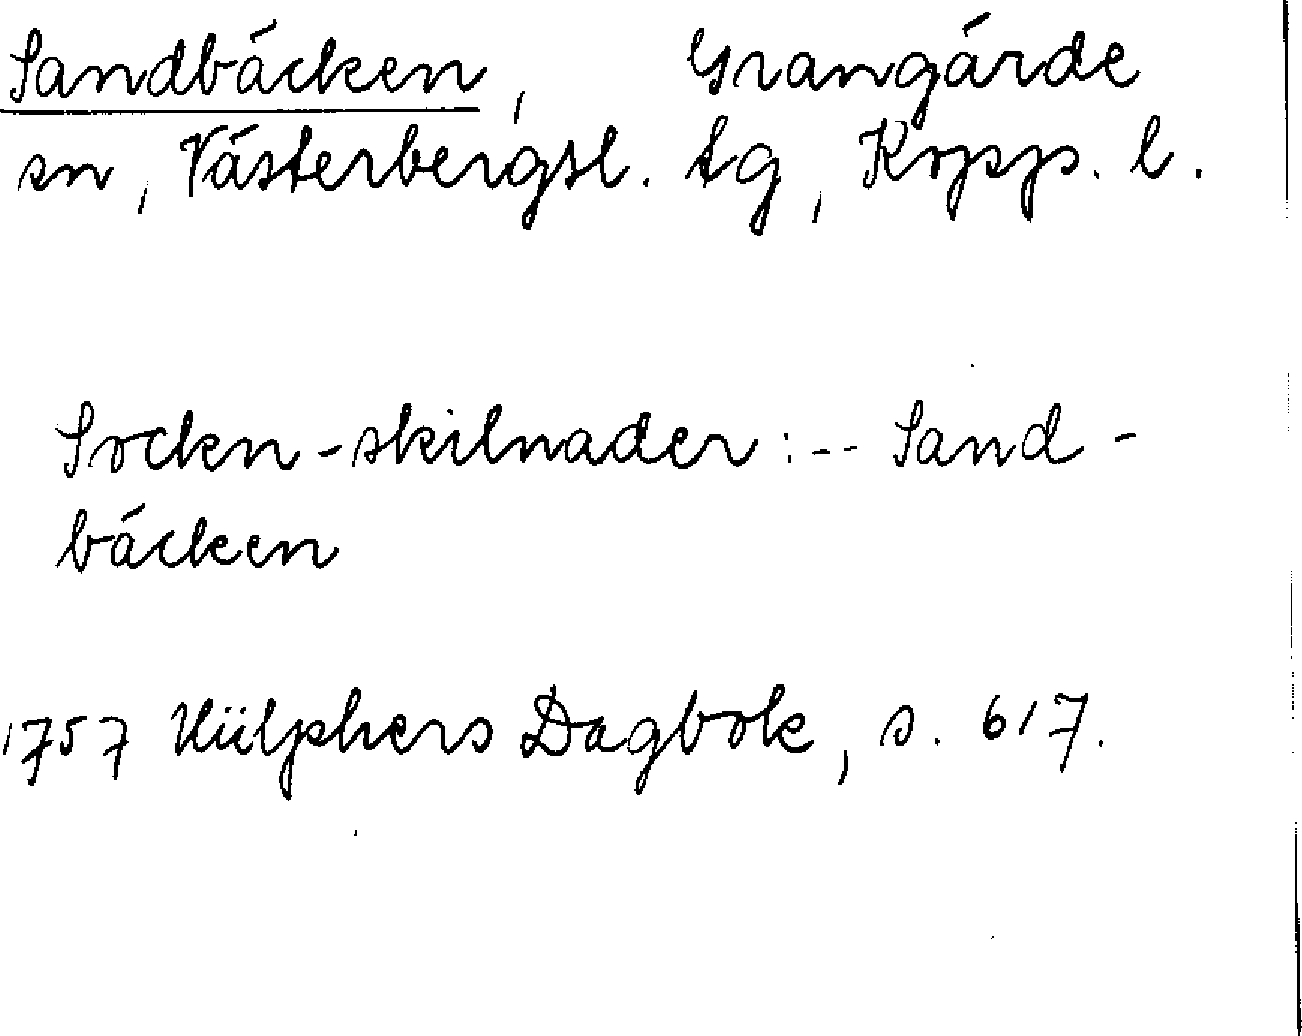 Sandbäcken, Grangärde
sn, Västerbergsl. tg, Kopp. l.
Socken-skilnader: -- Sand-
bäcken
1757 Hülphers Dagbok, s. 617.